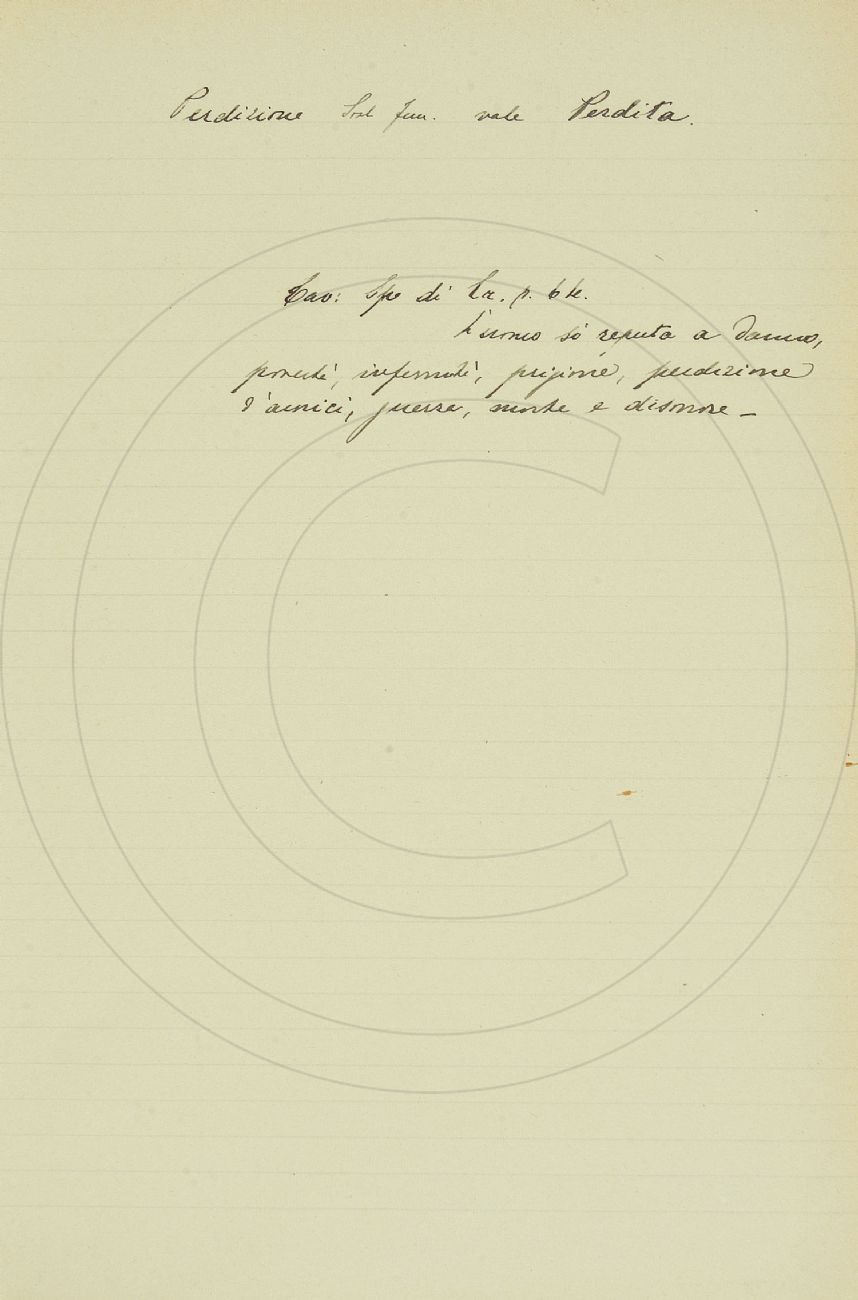 Perdizione Sost fem. vale Perdita.
Cav: Spe di Cr. p.
L'uomo si reputa a danno,
povertà, infermità, prigione, perdizione
d'amici, guerra, morte e disonore –